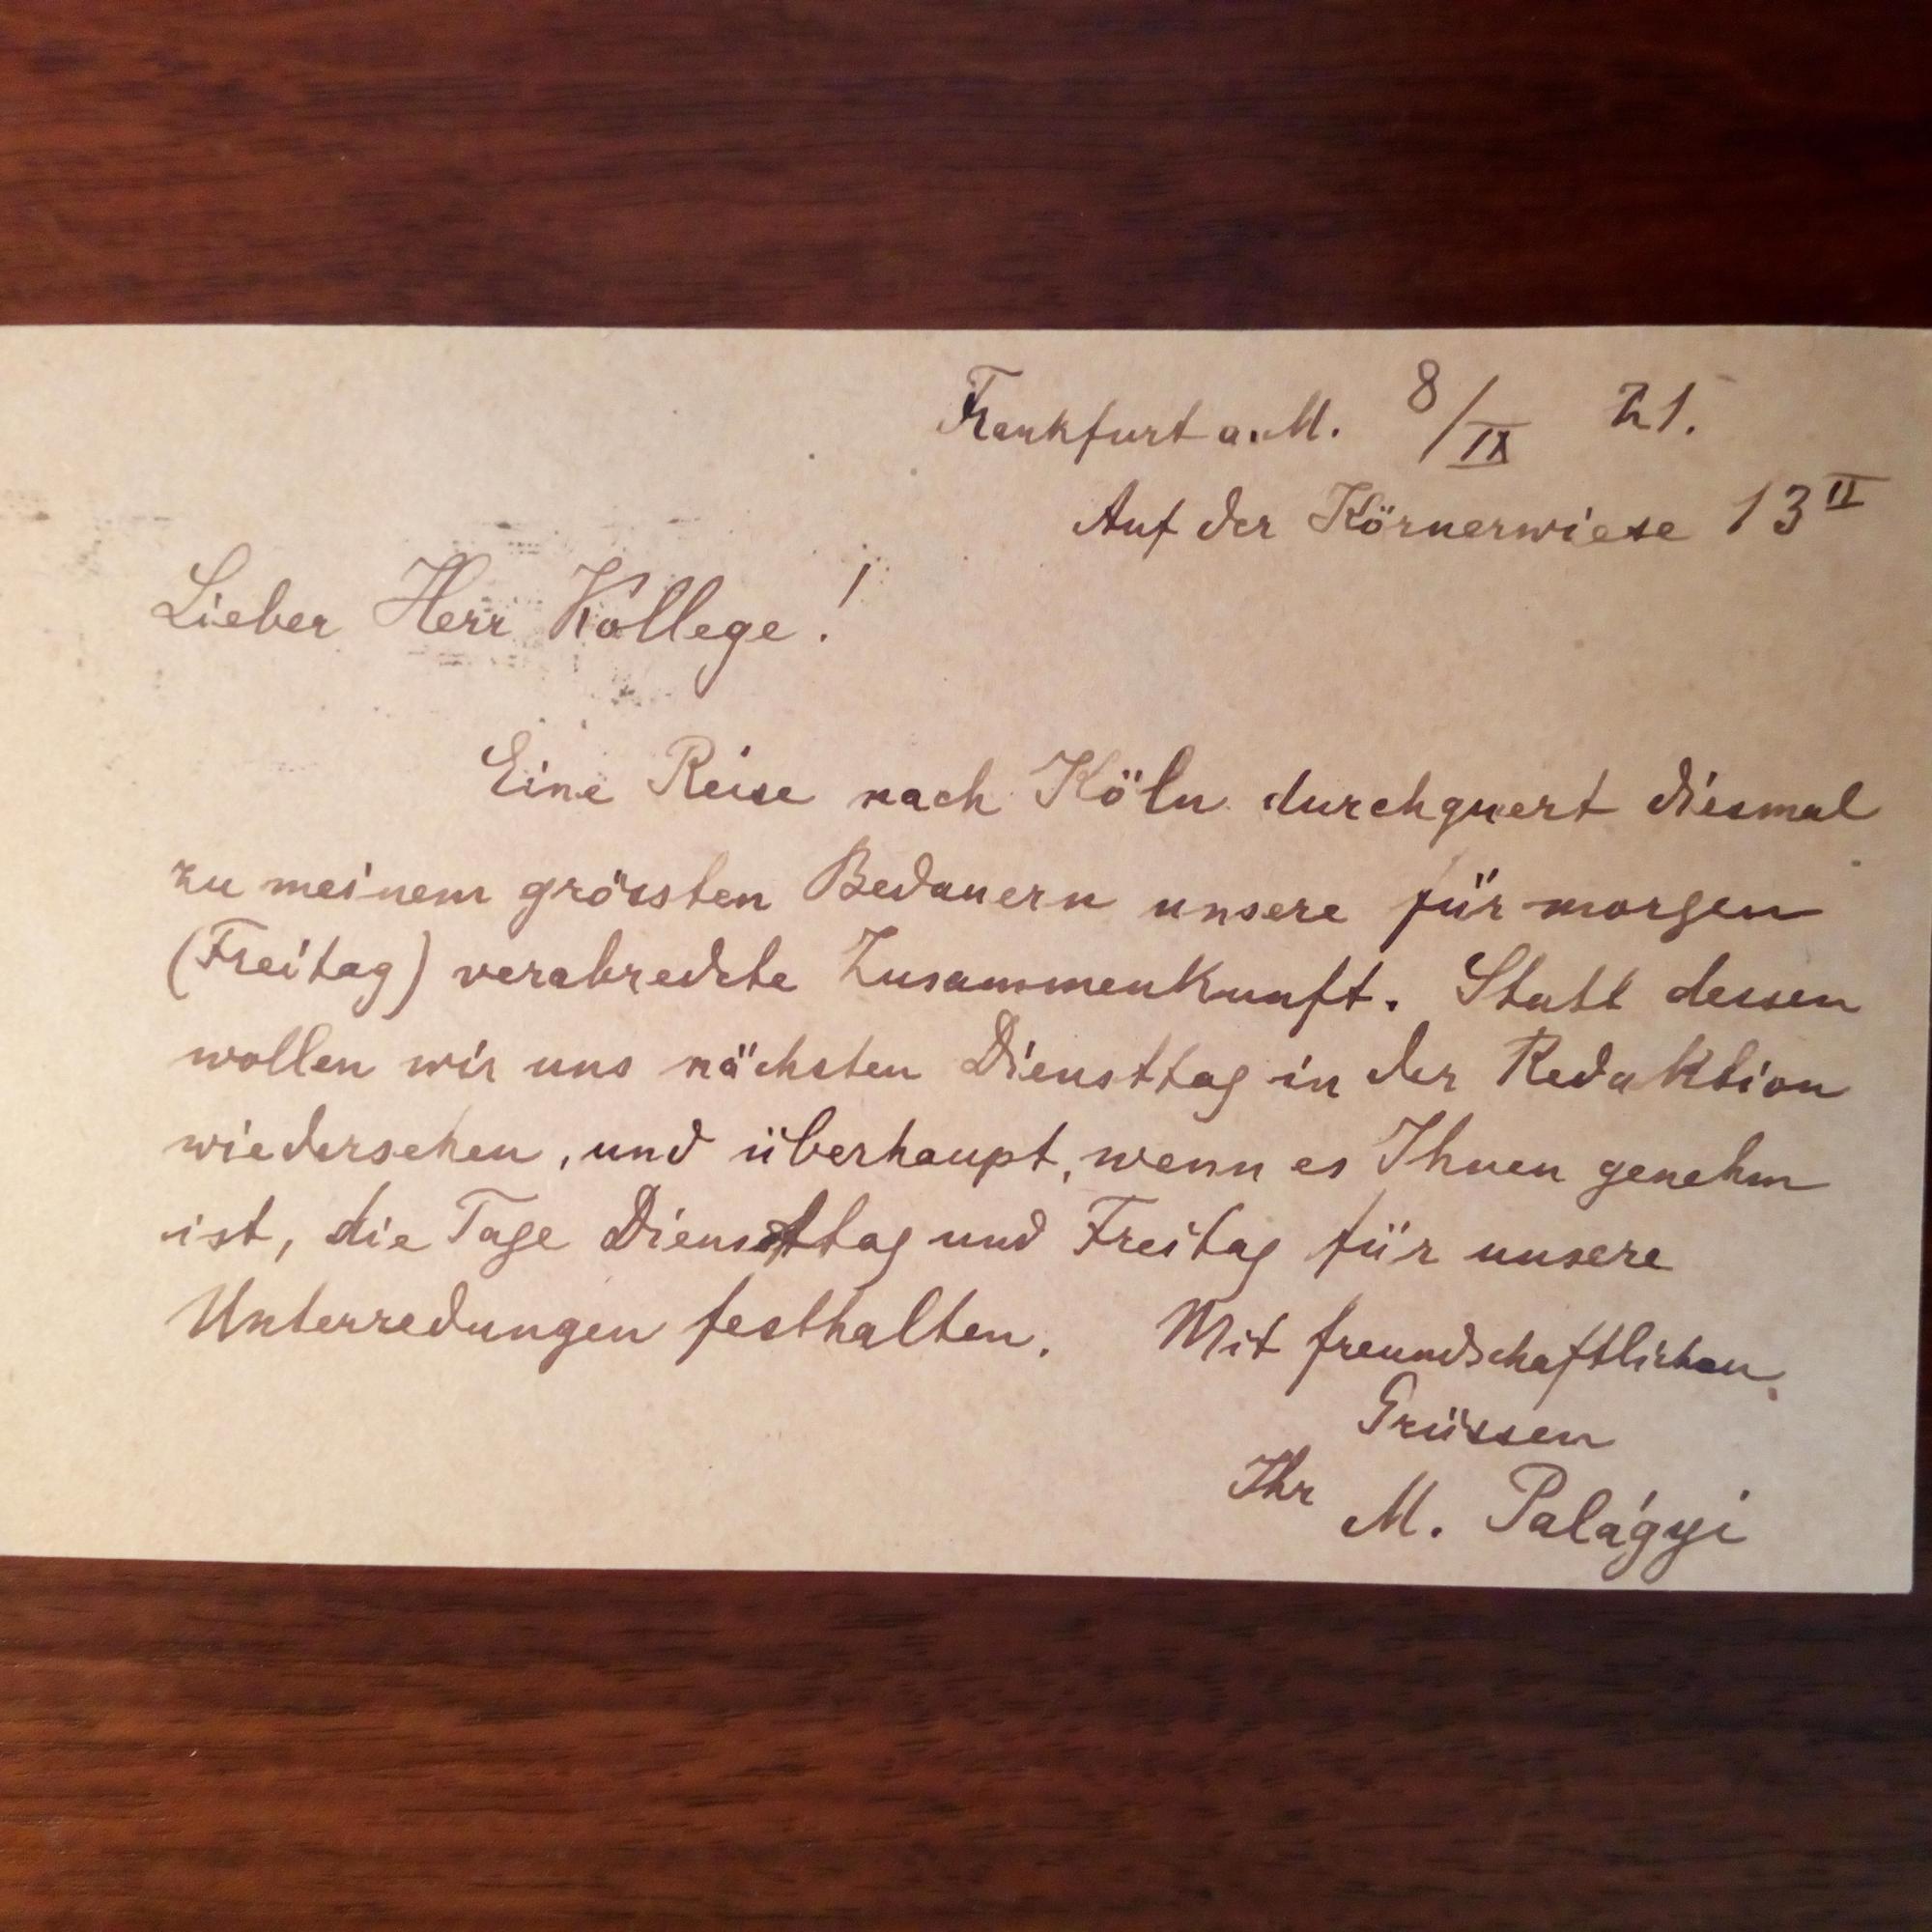 Frankfurt a.M. 8/IX 21.
Auf der Körnerwiese 13 II
Lieber Herr Kollege!
Eine Reise nach Köln durchquert diesmal
zu meinem grössten Bedauern unsere für morgen
(Freitag) verabredete Zusammenkunft. Statt dessen
wollen wir uns nächsten Diensttag in der Redaktion
wiedersehen, und überhaupt, wenn es Ihnen genehm
ist, die Tage Diensttag und Freitag für unsere
Unterredungen festhalten. Mit freundschaftlichen
Grüssen
Ihr M. Palágyi